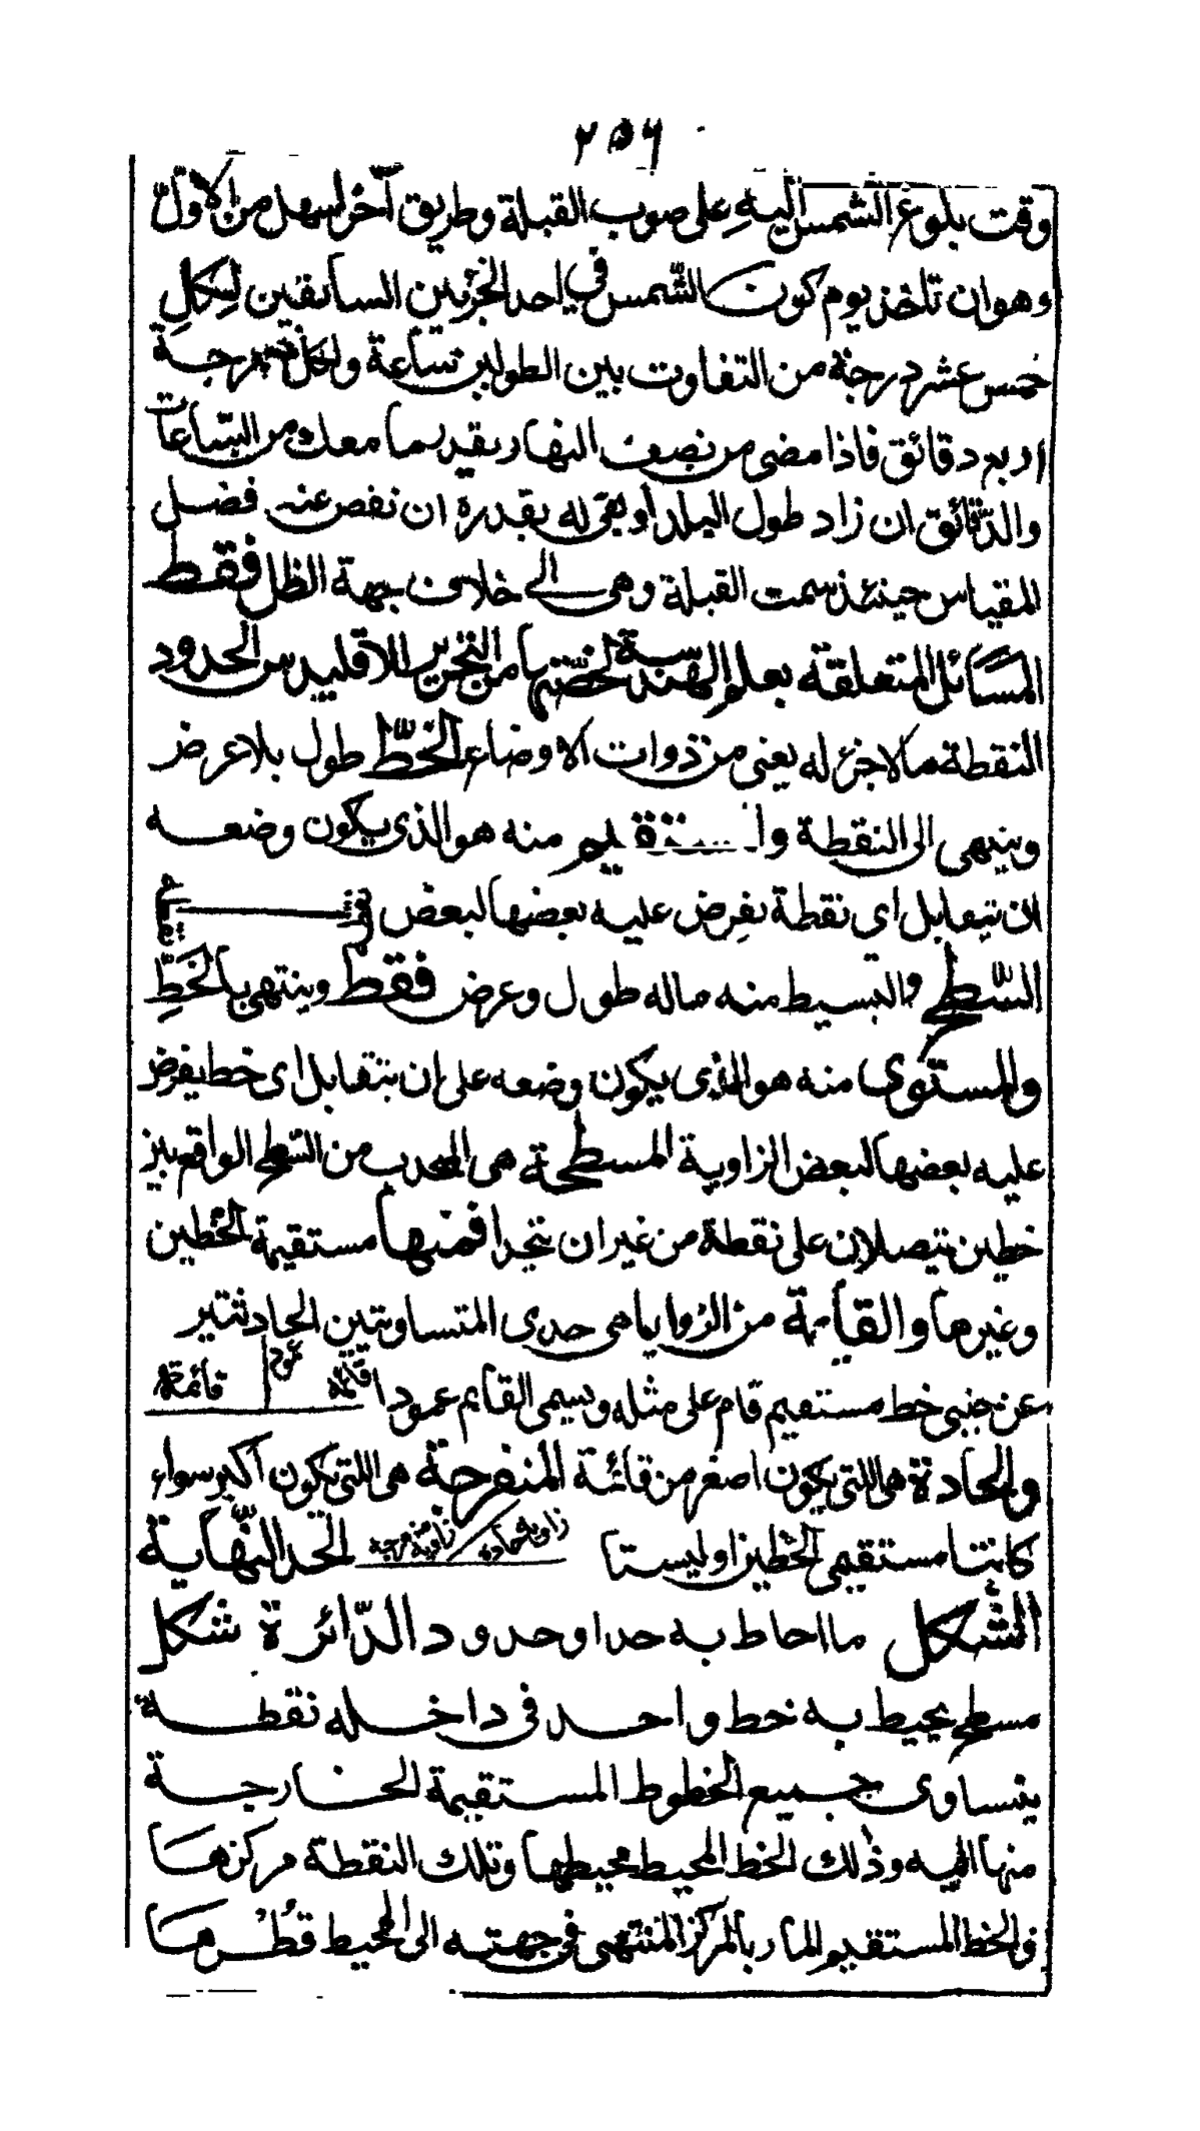 ٢٥٦
وقت بلوغ الشمس اليه على صوب القبلة وطريق آخر اسهل من الاول
وهو ان تاخذ يوم كون الشمس في احد الجزئين السابقين لكل
خمس عشر درجة من التفاوت بين الطولين ساعة ولكل درجة
اربع دقائق فاذا مضى من نصف النهار بقدر ما معك من الساعات
والدقائق ان زاد طول البلد او بقى له بقدره ان نقص عنه فضل
المقياس حينئذ سمت القبلة وهى الى خلاف جهة الظل فقط
المسائل المتعلقة بعلم الهندسة لخصتها من التحرير للاقليدس الحدود
النقطة ما لا جزء له يعنى من ذوات الاوضاع الخط طول بلا عرض
وينتهى الى النقطة والمستقيم منه هو الذى يكون وضعه
ان تتقابل اى نقطة يفرض عليه بعضها لبعض
السطح والبسيط منه ماله طول وعرض فقط وينتهى بالخط
والمستوى منه هو الذى يكون وضعه على ان يتقابل اى خط يفرض
عليه بعضها لبعض الزاوية المسطحة هى المحدب من السطح الواقع بين
خطين يتصلان على نقطة من غير ان يتحدا فمنها مستقيمة الخطين
وغيرها والقايمة من الزوايا هى حدى المتساويتين الحادثتين
عن جنبى خط مستقيم قام على مثله ويسمى القايم عمودا قائمة عمود قائمة
والحادة هى اللتى يكون اصغر من قائمة المنفرجة هى اللتى يكون اكبر سواء
كانتا مستقيمى الخطين او ليستا زاوية حادة زاوية منفرجة الحد النهاية
الشكل ما احاط به حد او حدود الدائرة شكل
مسطح يحيط به خط واحد فى داخله نقطة
يتساوى جميع الخطوط المستقيمة الخارجة
منها اليه وذلك الخط المحيط محيطها وتلك النقطة مركزها
والخط المستقيم المار بالمركز المنتهى فى جهتيه الى المحيط قطرها